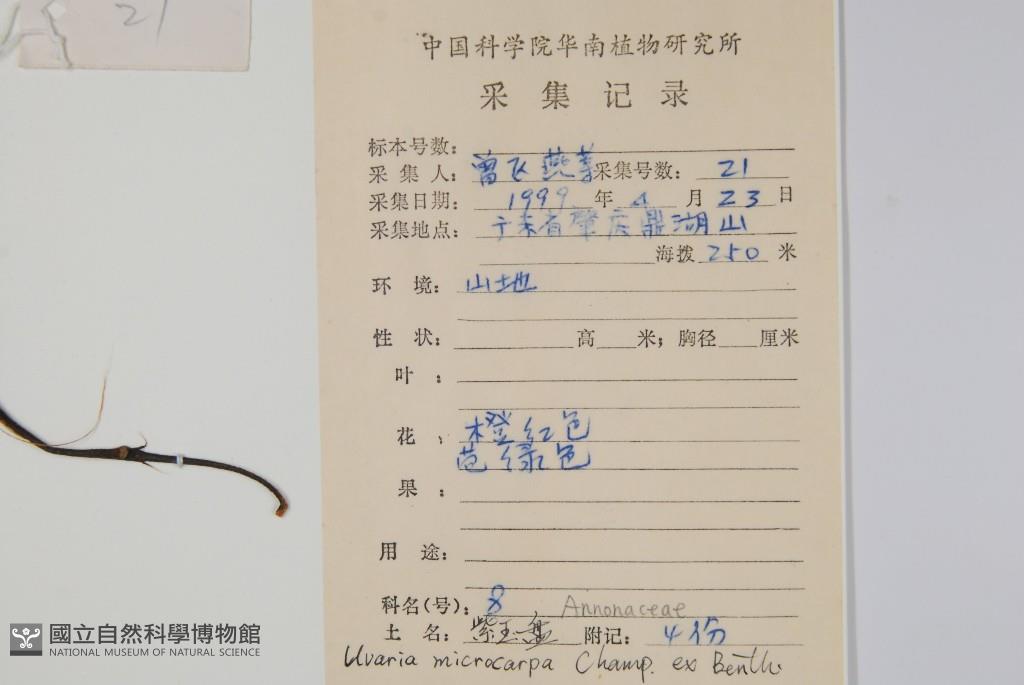 21
中国科学院华南植物研究所
采集记录
标本号数:
采集人: 曾飞燕等 采集号数: 21
采集日期: 1999 年 4 月 23 日
采集地点: 广东省肇庆鼎湖山
海拨 250 米
环境: 山地
性状: 高 米; 胸径 厘米
叶:
花: 橙红色
苞绿色
果:
用途:
科名(号): 8, Annonaceae
土名: 紫玉盘 附记: 4份
Uvaria microcarpa Champ. ex Benth.
國立自然科學博物館
NATIONAL MUSEUM OF NATURAL SCIENCE